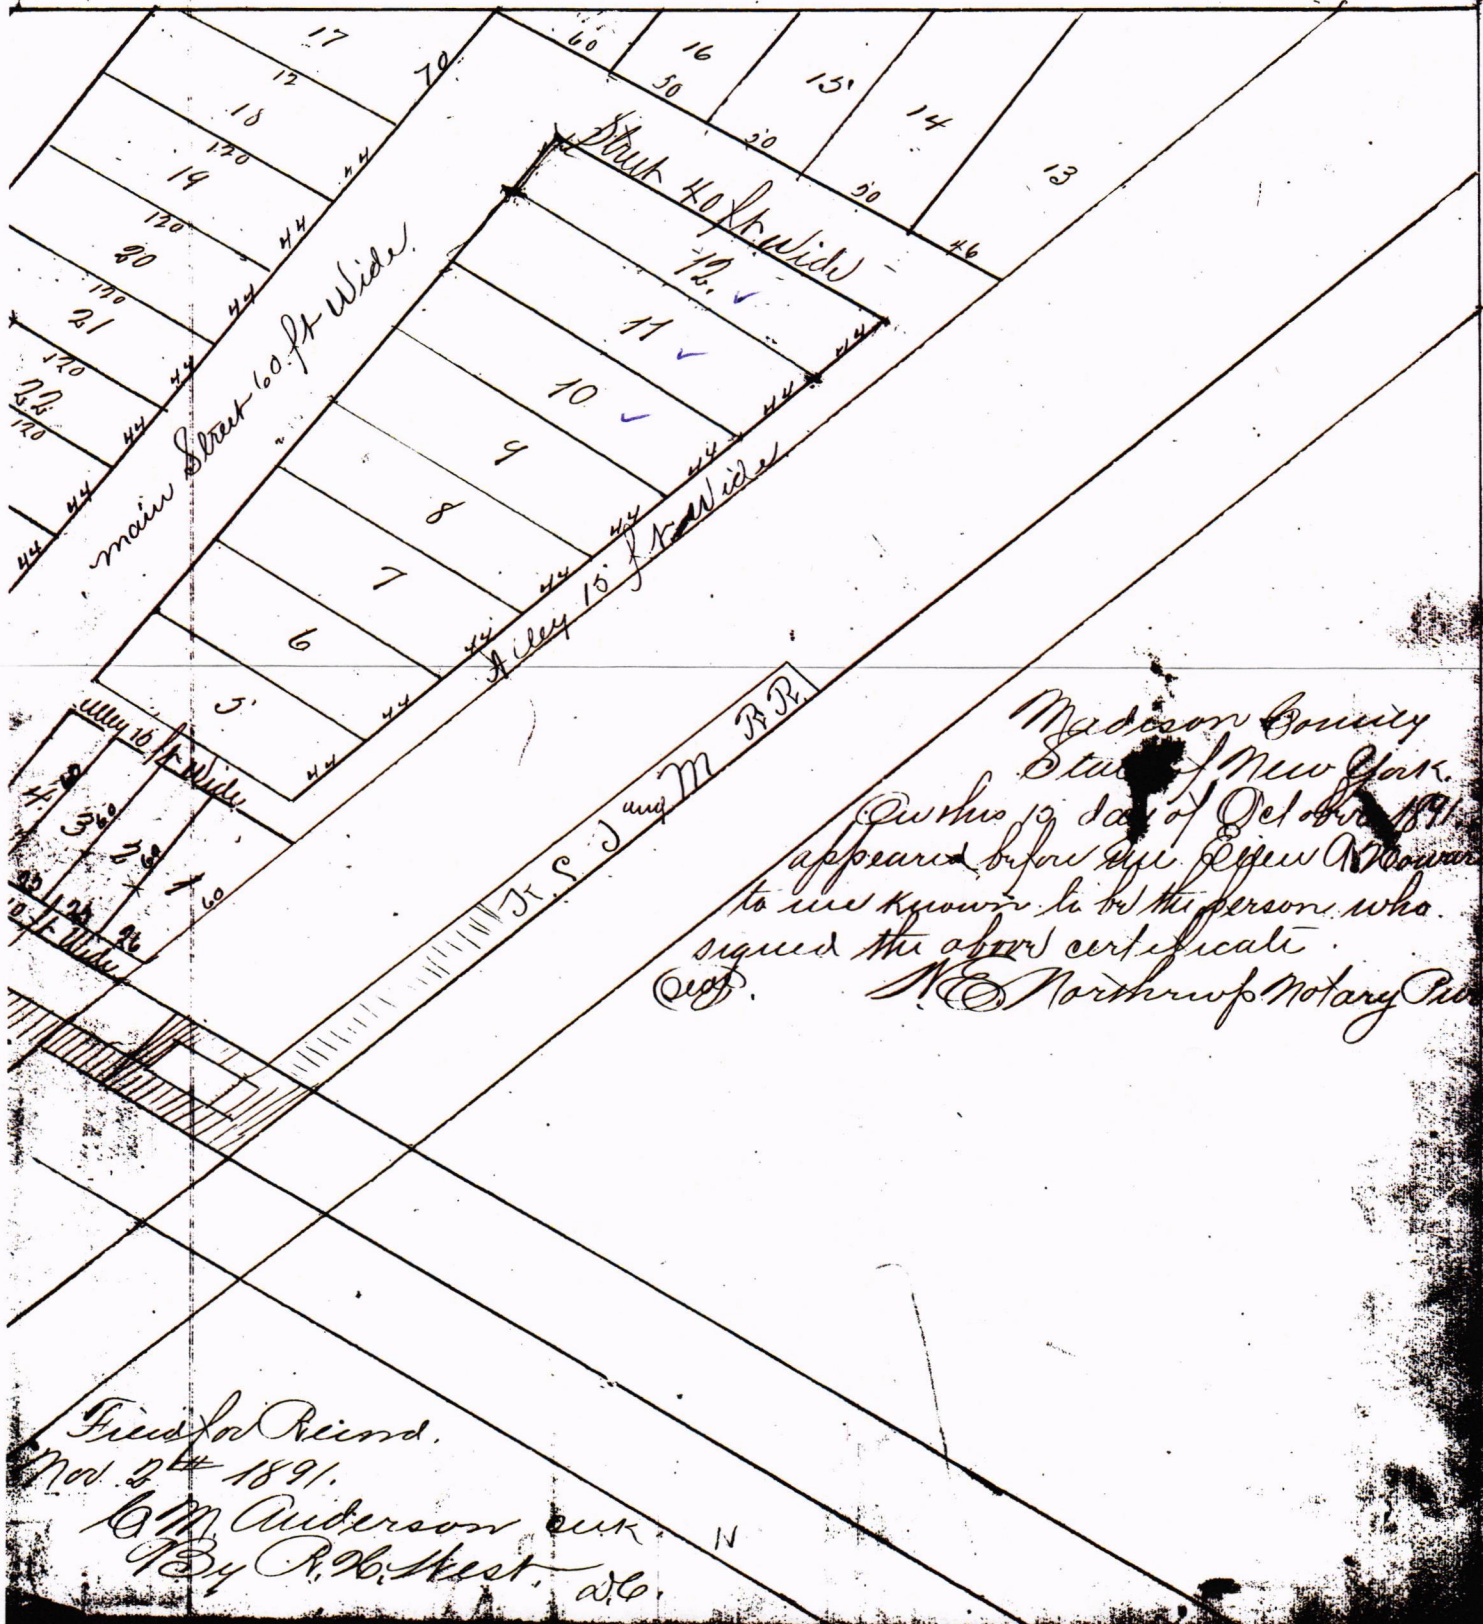 17
12
18
120
19
120
20
120
21
120
22
120
70
44
44
44
44
44
44
44
60
16
50
15
50
14
50
13
46
Main Street 60 ft Wide.
Street 40 ft Wide
12.
11
10
9
8
7
6
5
44
44
44
44
44
44
44
44
Alley 15 ft Wide
Alley 10 ft Wide
4 60
3 60
2 60
1 60
26
ft Wide
K C S J and M R R.
Madison County
State of New York.
On this 12 day of October 1891
appeared before me
to me known to be the person who
signed the above certificate.
(Seal). N. E. Northrup Notary
Filed for Record.
Nov 2th 1891.
C. M. Anderson Clerk.
By R. H. West. D.C.
N